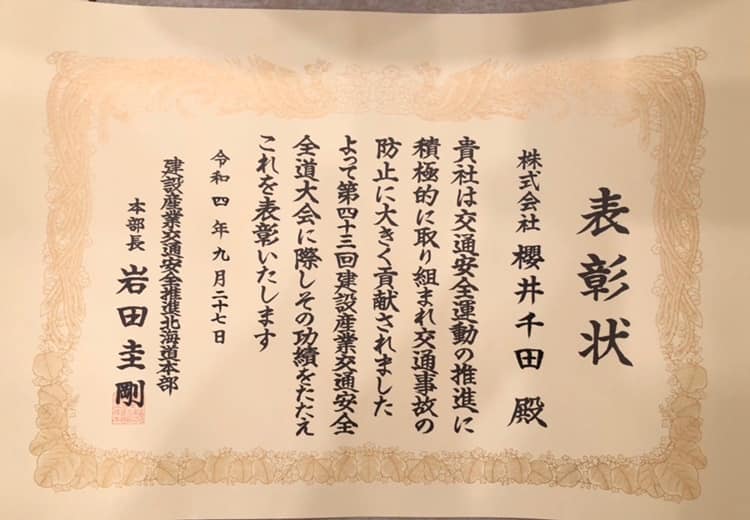 表彰状
株式会社 櫻井千田 殿
貴社は交通安全運動の推進に
積極的に取り組まれ交通事故の
防止に大きく貢献されました
よって第四十三回建設産業交通安全
全道大会に際しその功績をたたえ
これを表彰いたします
令和四年九月二十七日
建設産業交通安全推進北海道本部
本部長 岩田圭剛